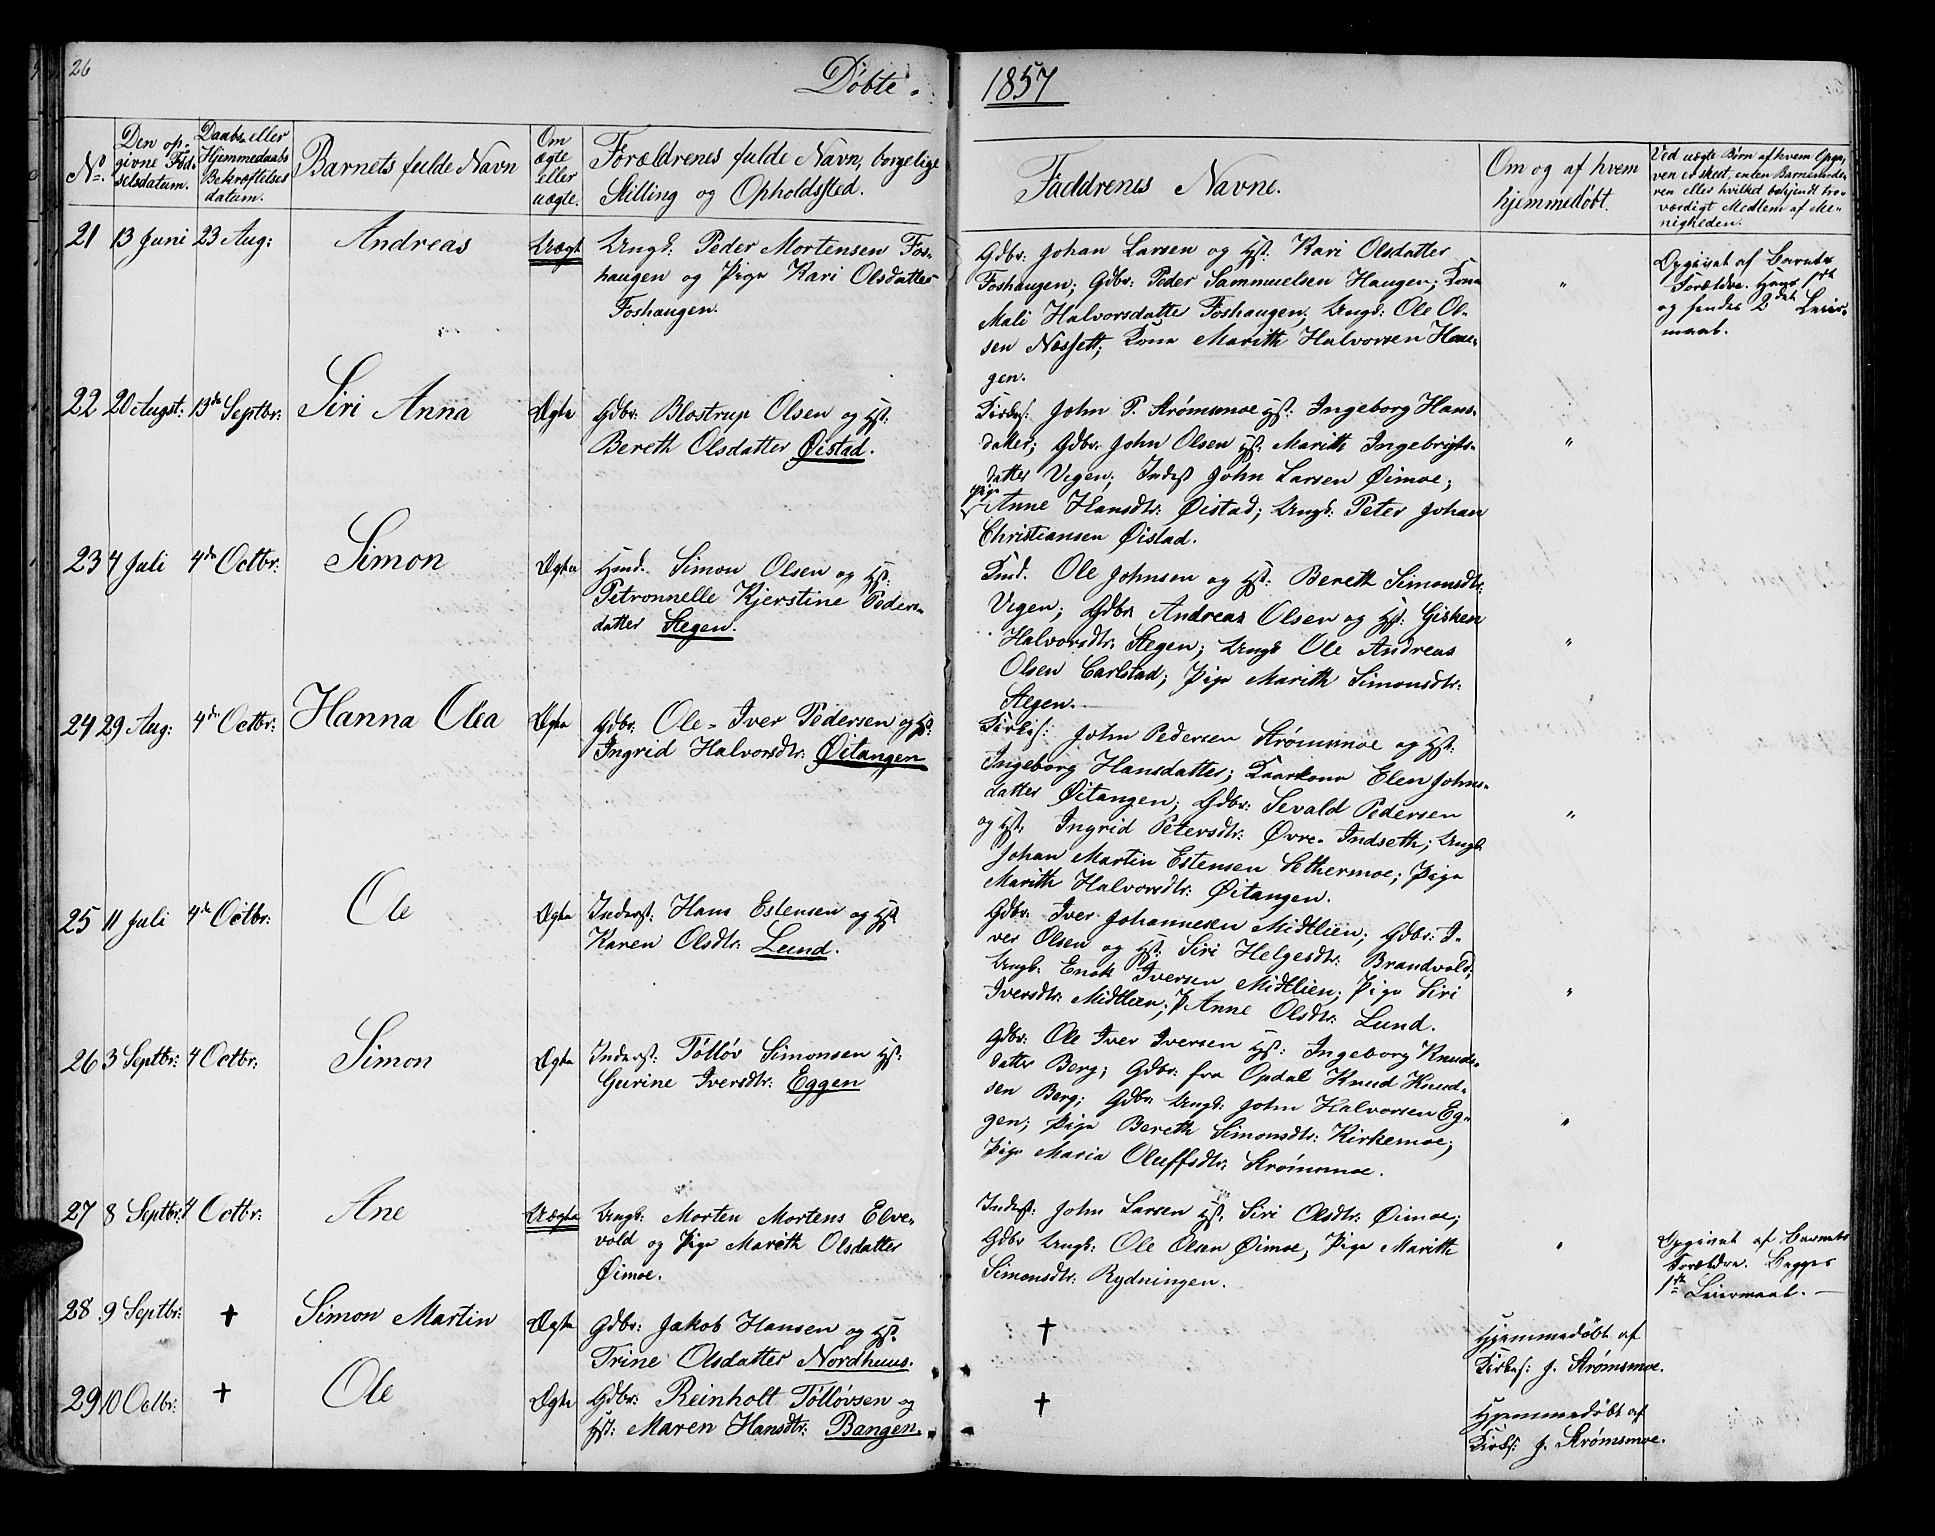 26
Døbte.
1857
No.
Den op-
givne Fød-
selsdatum.
Daabs eller
Hjemmedaabs
Bekræftelses
datum.
Barnets fulde Navn
Om
ægte
eller
uægte.
Forældrenes fulde Navn, borgelige
Stilling og Opholdsted.
Faddrenes Navne.
Om og af hvem
hjemmedøbt.
Ved uægte Børn af hvem Opgi-
ven er skeet, enten Barnemode-
ren eller hvilket bekjendt tro-
værdigt Medlem af Me-
nigheden.
21 13 Juni 23 Aug: Andreas Uægt
Ungk: Peder Mortensen Fos-
haugen og Pige Kari Olsdatter
Foshaugen.
Gdbr: Johan Larsen og Hst: Kari Olsdatter
Foshaugen; Gdbr: Peder Sammuelsen Haugen; Kone
Mali Halvorsdatter Foshaugen; Ungk: Ole Ol-
sen Næssett; Kone Marith Halvorsen Hau-
gen.
"
Opgivet af Barnets
Forældre. Hans 1ste
og hendes 2det Leier-
maal.
22 20 August: 13de Septbr: Siri Anna Ægte
Gdbr: Blostrup Olsen og Hst:
Bereth Olsdatter Øistad.
Kirkes: John P. Strømsmoe Hst: Ingeborg Hans-
datter; Gdbr: John Olsen Hst: Marith Ingebrigts-
datter Vegen; Inderst John Larsen Øimoe;
Pige
Anne Hansdtr: Øistad; Ungk: Peter Johan
Christiansen Øistad.
"
23 4 Juli 4de Octbr: Simon Ægte
Husmd. Simon Olsen og Hst:
Petronnelle Kjerstine Peders-
datter Stegen.
Husmd. Ole Johnsen og Hst: Bereth Simonsdtr:
Vegen; Gdbr: Andreas Olsen og Hst: Gisken
Halvorsdtr: Stegen; Ungk Ole Andreas
Olsen Carlstad; Pige Marith Simonsdtr:
Stegen.
"
24 29 Aug: 4de Octbr: Hanna Olea Ægte
Gdbr: Ole-Iver Pedersen og Hst:
Ingrid Halvorsdtr: Øitangen
Kirkes: John Pedersen Strømsmoe og Hst:
Ingeborg Hansdatter; Kaarkone Elen Johns-
datter Øitangen; Gdbr: Sevald Pedersen
og Hst: Ingrid Petersdtr: Øvre-Indseth; Ungk:
Johan Martin Estensen Sethermoe; Pige
Marith Halvorsdtr: Øitangen.
"
25 11 Juli 4de Octbr: Ole Ægte
Inderst: Hans Estensen og Hst
Karen Olsdtr: Lund.
Gdbr: Iver Johannesen Midtlien; Gdbr: I-
ver Olsen og Hst: Siri Helgesdtr: Brandvold;
Ungk: Enok Iversen Midtlien; Pige Siri
Iversdtr: Midtlien; P. Anne Olsdtr: Lund.
"
26 3 Septbr: 4 Octbr: Simon Ægte
Inderst: Tølløv Simonsen Hst:
Gurine Iversdtr: Eggen
Gdbr: Ole Iver Iversen Hst: Ingeborg Knuds-
datter Berg; Gdbr: fra Opdal Knud Knud-
sen Berg; Gdbr: Ungk: John Halvorsen Eg-
gen; Pige Bereth Simonsdtr: Kirkemoe;
Pige Maria Oluffsdtr: Strømsmoe.
"
27 8 Septbr: 4 Octbr: Ane Uægte
Ungk: Morten Mortens Elve-
vold og Pige Marith Olsdatter
Øimoe.
Inderst: John Larsen Hst: Siri Olsdtr: Øimoe;
Gdbr Ungk: Ole Olsen Øimoe; Pige Marith
Simonsdtr: Rydningen.
"
Opgivet af Barnets
Forældre. Begges
1ste Leiermaal.
28 9 Septbr: † Simon Martin Ægte
Gdbr: Jakob Hansen og Hst.
Trine Olsdatter Nordhuus.
†
Hjemmedøbt af
Kirkes: J. Strømsmoe.
29 10 Octbr: † Ole Ægte
Gdbr: Reinholt Tølløvsen og
Hst: Maren Hansdtr: Bangen.
†
Hjemmedøbt af
Kirkes: J. Strømsmoe.